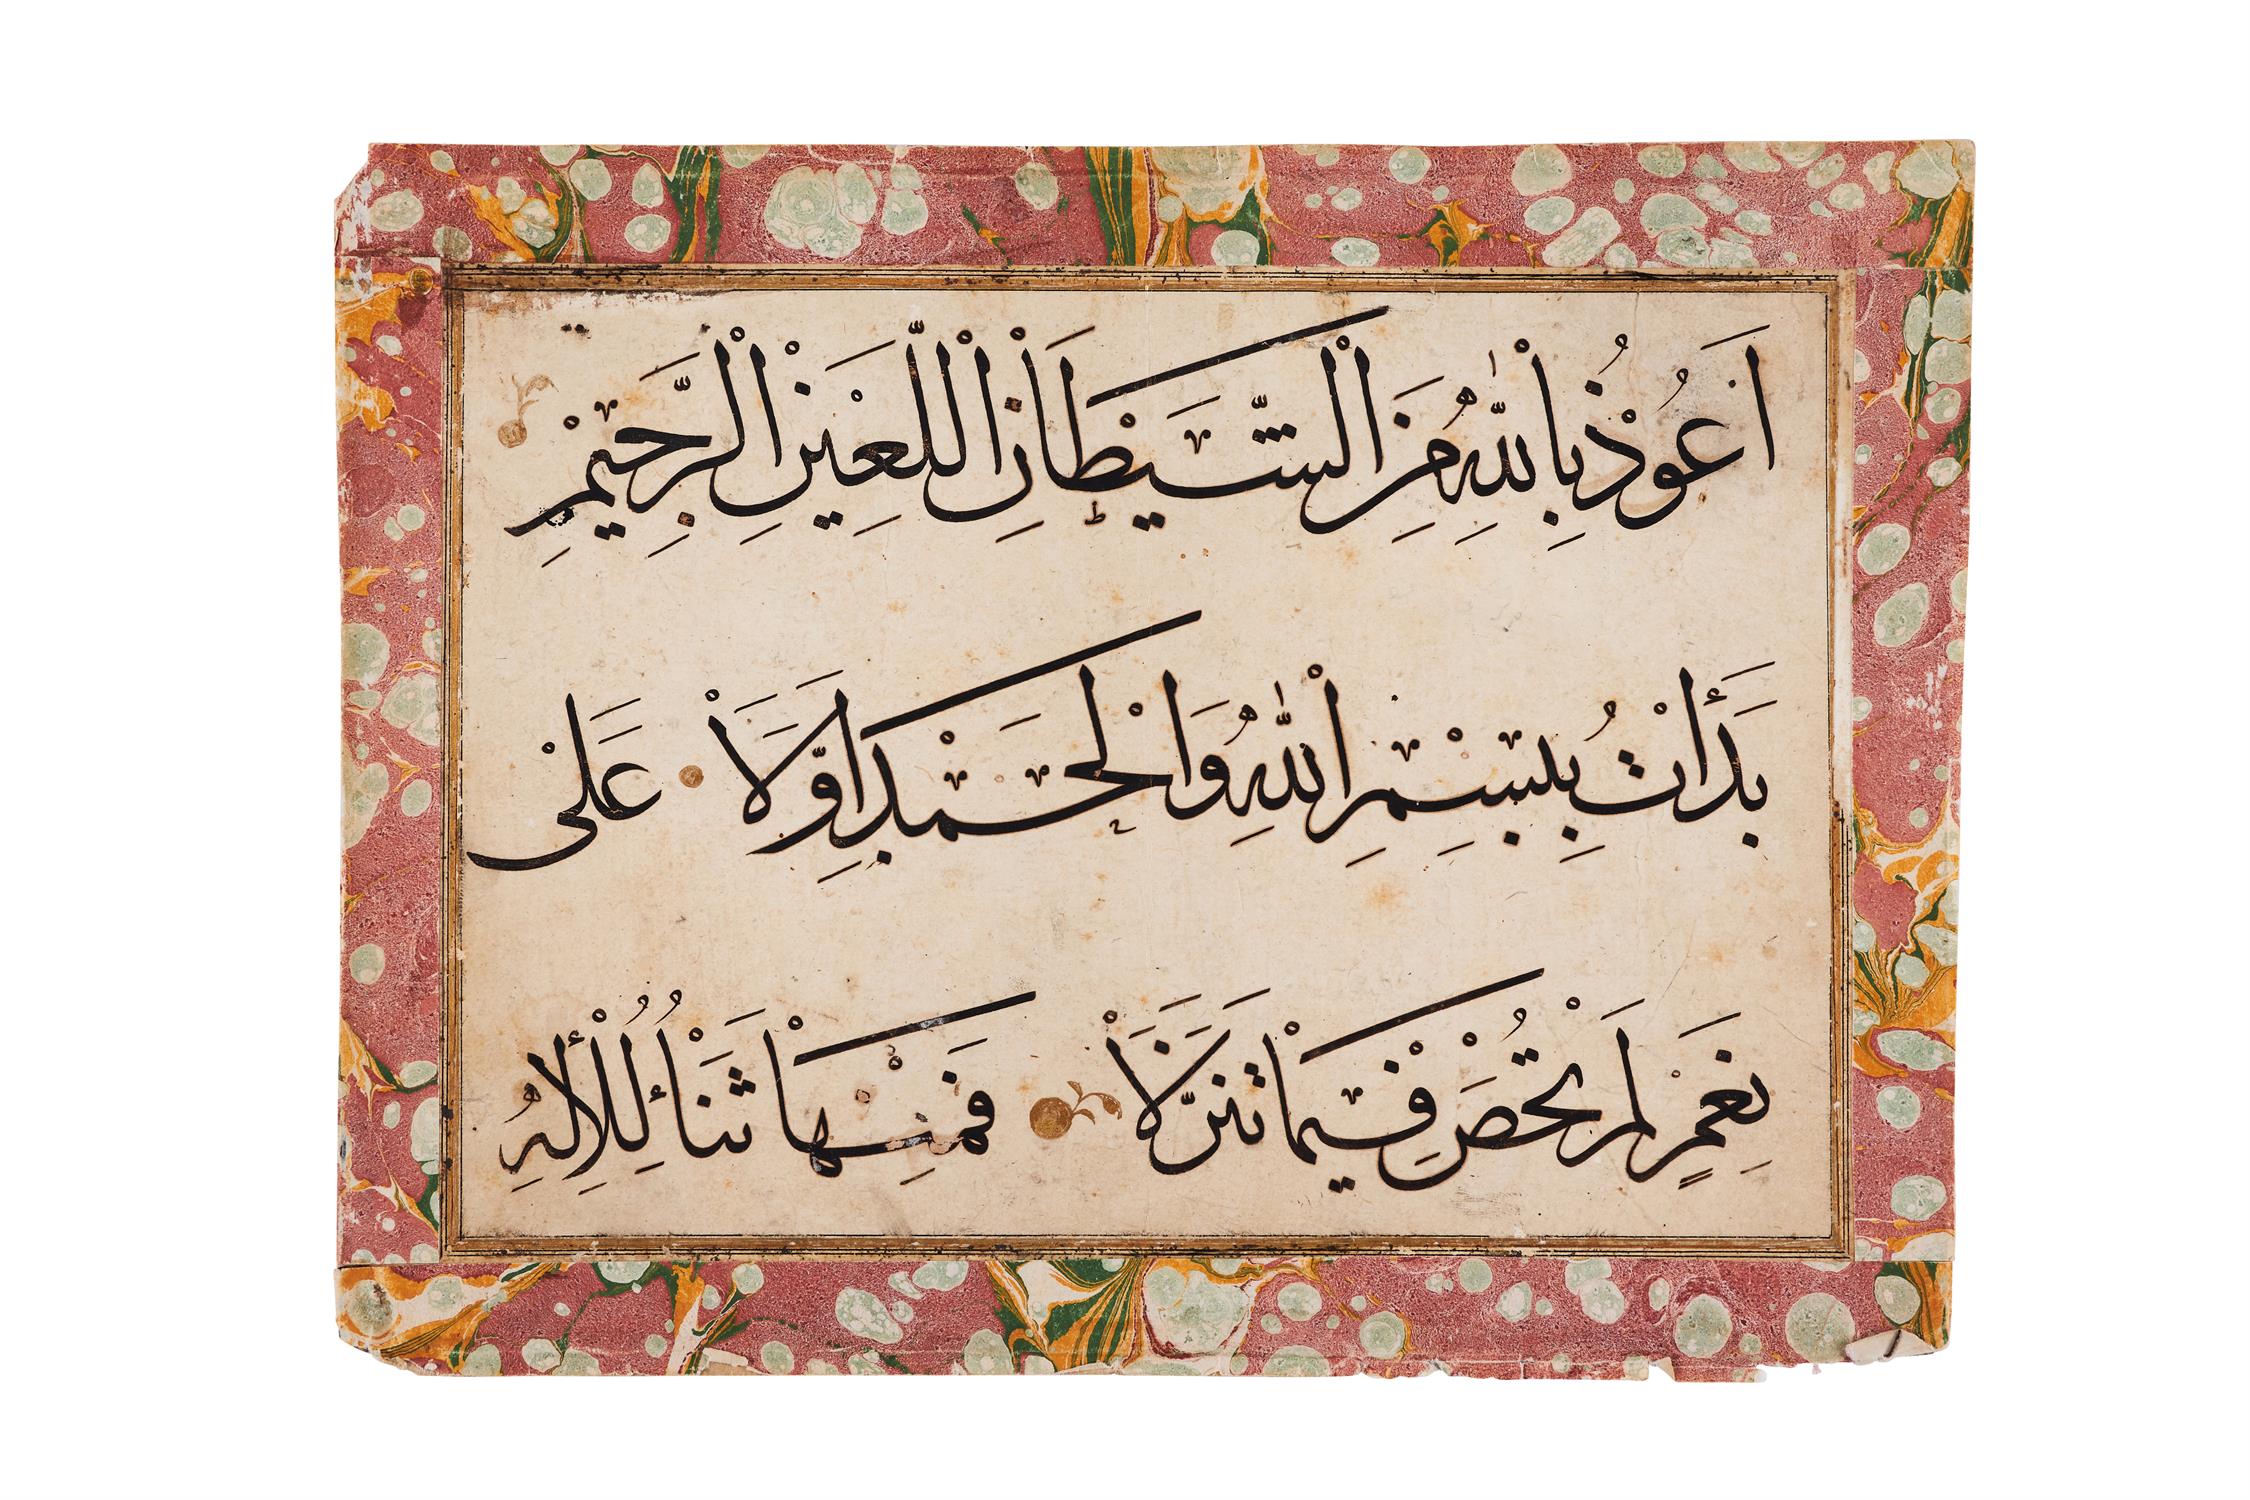 اَعُوْذُ بِاْللّٰهِ مِنَ اْلشَّيْطَاْنِ اْللَّعِيْنِ اْلرَّجِيْمِ
بَدَأْتُ بِبِسْمِ اْللّٰهِ وَاْلحَمْدِ اَوَّلَاْ عَلَىْ
نِعَمٍ لَمْ تُحْصَ فِيْمَاْ تَنَزَّلَاْ فَمِنْهَاْ ثَنَاْءُ لِلْأِلٰهِ